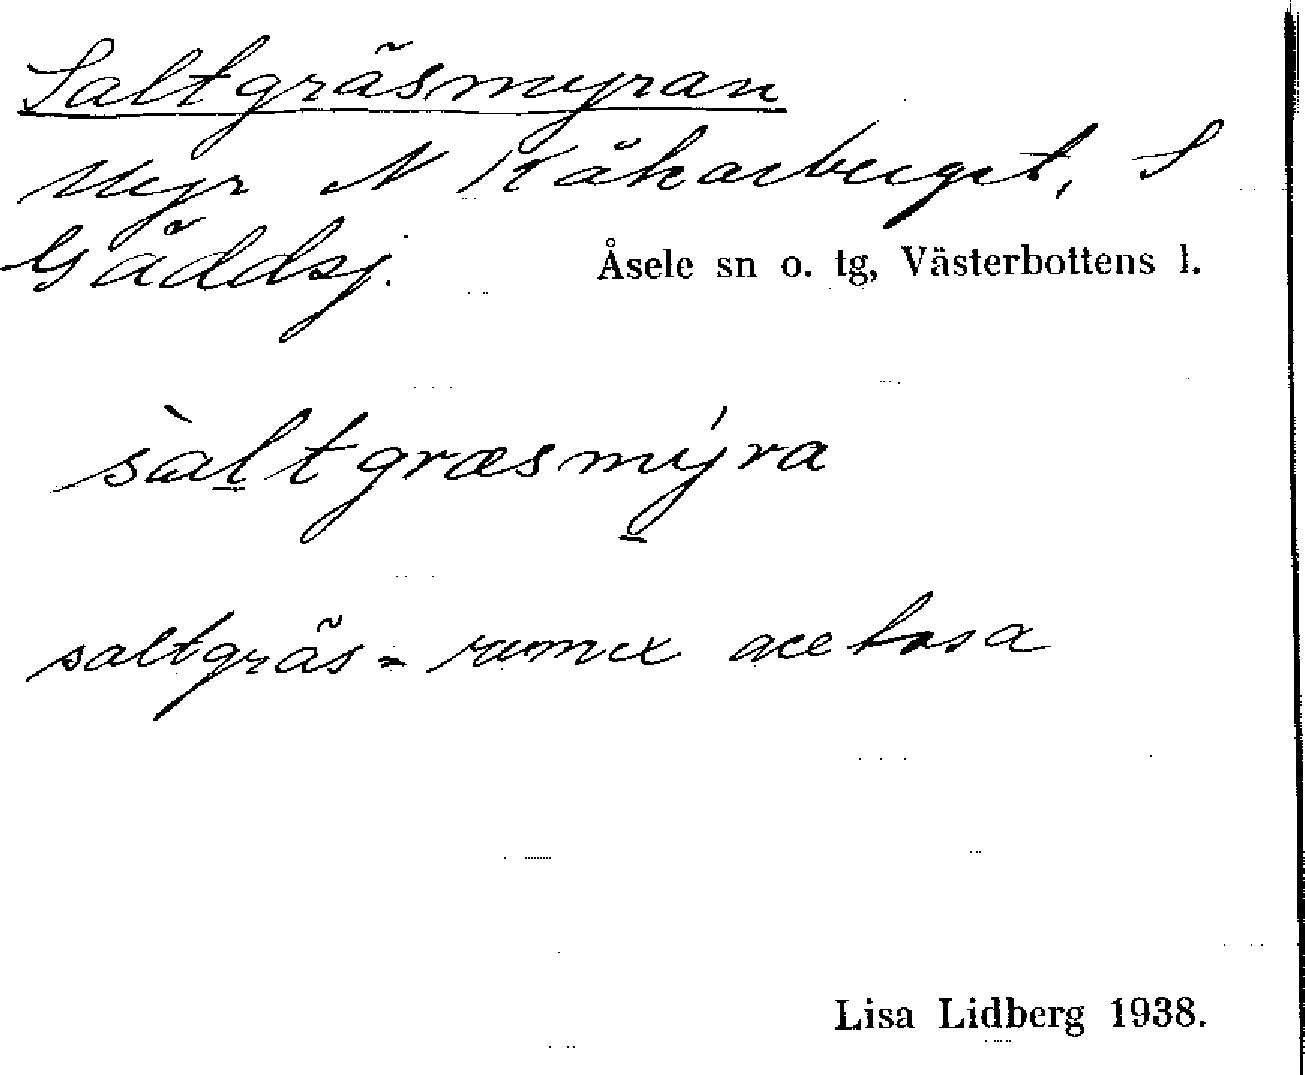 Saltgräsmyran
Myr N Kåkarberget, S
Gäddsj. Åsele sn o. tg, Västerbottens l.
sàltgræsmýra
saltgräs = rumex acetosa
Lisa Lidberg 1938.